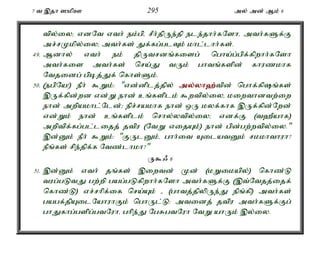 7 வ இதா ஸமிஊ 295 அல் அன் ஆம் 6
வில்லை; எனவே எவர் நம்பி, சீர்திருந்தி நடந்தார்களோ, அவர்களுக்கு
அச்சமுமில்லை; அவர்கள் துக்கப்படவும் மாட்டார்கள்.
49. ஆனால் எவர் நம் திருவசனங்களைப் பொய்ப்பிக்கிறார்களோ
அவர்களை அவர்கள் செய்து வரும் பாவங்களின் காரணமாக
வேதனைப் பிடித்துக் கொள்ளும்.
50. (நபியே!) நீர் கூறும்: "என்னிடத்தில் அல்லாஹ்வின் பொக்கிஷங்கள்
இருக்கின்றன என்று நான் உங்களிடம் கூறவில்லை, மறைவானவற்றை
நான் அறியமாட்டேன்; நிச்சயமாக நான் ஒரு மலக்காக இருக்கின்றேன்
என்றும் நான் உங்களிடம் சொல்லவில்லை; எனக்கு (வஹீயாக)
அறிவிக்கப்பட்டதைத் தவிர (வேறு எதையும்) நான் பின்பற்றவில்லை."
இன்னும் நீர் கூறும்: "குருடனும், பார்வை யுடையவனும் சமமாவாரா?
நீங்கள் சிந்திக்க வேண்டாமா?"
ருகூ 5
51. இன்னும் எவர் தங்கள் இறைவன் முன் (மறுமையில்) கொண்டு
வரப்படுவது பற்றி பயப்படுகிறார்களோ அவர்களுக்கு (இவ்வேதத்தைக்
கொண்டு) எச்சரிக்கை செய்யும் , (பாவத்திலிருந்து நீங்கி) அவர்கள்
பயபக்தியுடையோராகும் பொருட்டு; அவனைத் தவிர அவர்களுக்குப்
பாதுகாப்பளிப்பவரோ, பரிந்து பேசுபவரோ வேறு யாரும் இல்லை.